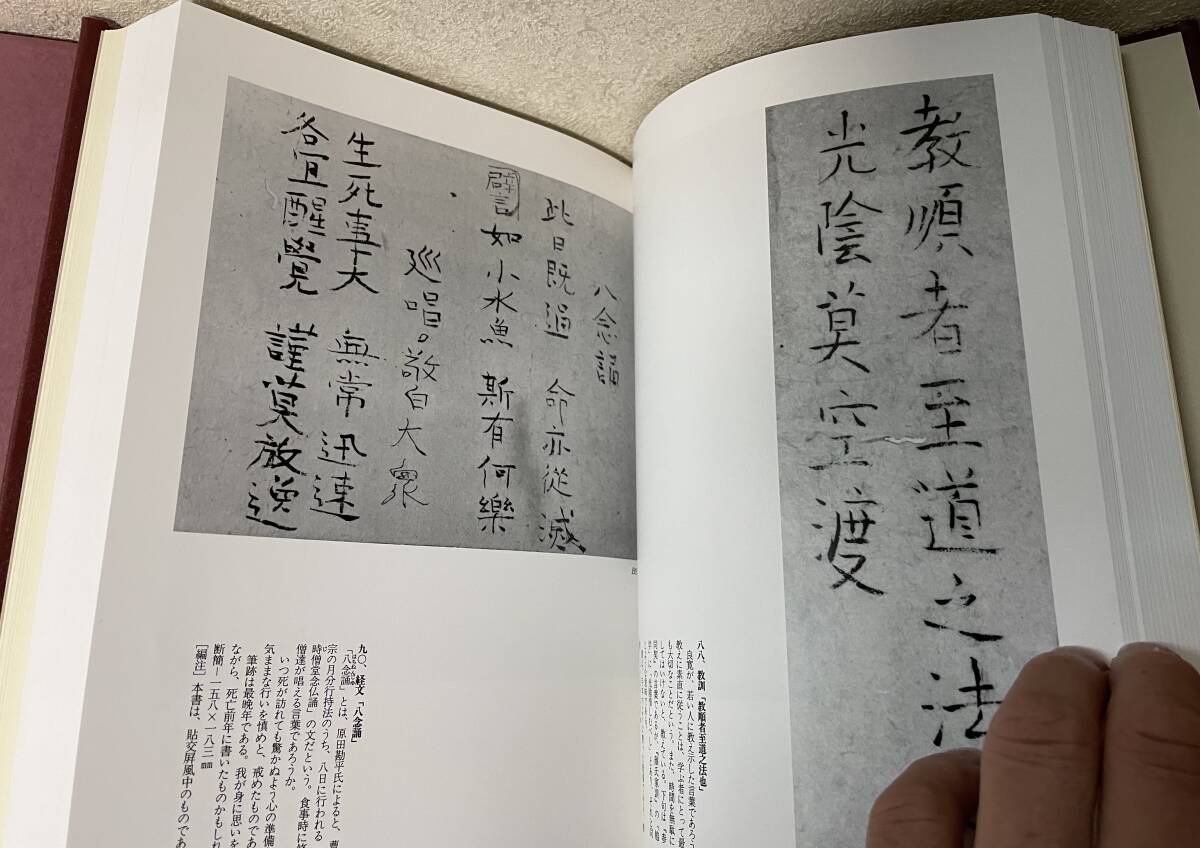 教順者至道之法
光陰莫空渡
八八、教訓「教順者至道之法也」
良寛が、若い人に教え示した言葉であろう
教えに素直に従うことは、学ぶ者にとって最
も大切なことだという。また、時間を無駄に
してはいけないと、教えている。下句は「参
同契」の言葉であるが、
八念誦
此日既過　命亦從滅
譬如小水魚　斯有何樂
巡唱。敬白大衆
生死事大　無常迅速
各宜醒覺　謹莫放逸
九〇、経文「八念誦」
「八念誦」とは、原田勘平氏によると、曹
宗の月分行持法のうち、八日に行われる
時僧堂念仏誦」の文だという。食事時に修
僧達が唱える言葉であろうか。
いつ死が訪れても驚かぬよう心の準備
気ままな行いを慎めと、戒めたものであ
筆跡は最晩年である。我が身に思いを
ながら、死亡前年に書いたものかもしれ
断簡―一五八×一八三㎜
［編注］本書は、貼交屏風中のものであ